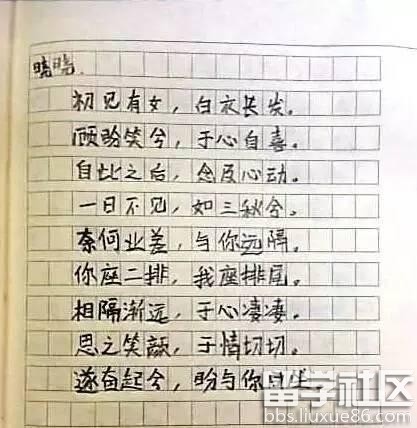 晓晓.
初见有女，白衣长发。
顾盼笑兮，于心自喜。
自此之后，念及心动。
一日不见，如三秋兮。
奈何业差，与你远隔。
你座二排，我座排尾。
相隔渐远，于心凄凄。
思之笑颜，于情切切。
遂奋起兮，盼与你同坐。
留学社区
bbs.liuxue86.com